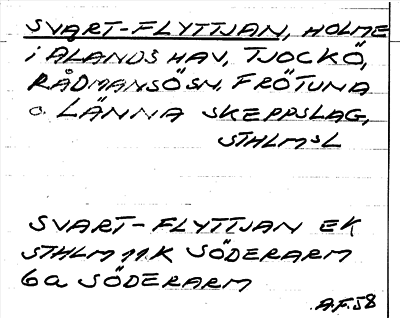 SVART-FLYTTJAN, HOLME
i ALANDS HAV, TJOCKÖ,
RÅDMANSÖ SN, FRÖTUNA
o. LÄNNA SKEPPSLAG,
STHLMSL
SVART-FLYTTJAN EK
STHLM 11K SÖDERARM
6a SÖDERARM
A.F.58